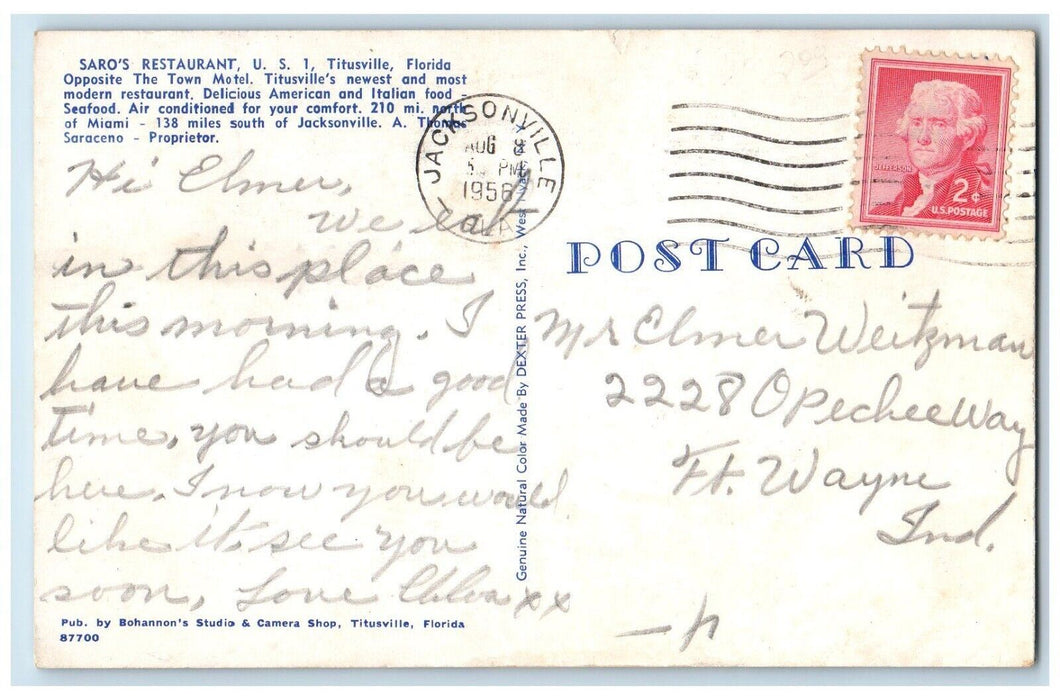 SARO'S RESTAURANT, U. S. 1, Titusville, Florida
Opposite The Town Motel. Titusville's newest and most
modern restaurant. Delicious American and Italian food -
Seafood. Air conditioned for your comfort. 210 mi. north
of Miami - 138 miles south of Jacksonville. A. Thomas
Saraceno - Proprietor.
Hi Elmer,
We eat
in this place
this morning. I
have had a good
time, you should be
here. I now you would
like it. see you
soon, Love xx
Pub. by Bohannon's Studio & Camera Shop, Titusville, Florida
87700
Genuine Natural Color Made By DEXTER PRESS, Inc., West
JACKSONVILLE
AUG 8
PM
1956
FLA
JEFFERSON
2¢
U.S. POSTAGE
POST CARD
Mr Elmer Weitzman
2228 Opechee Way
Ft. Wayne
Ind.